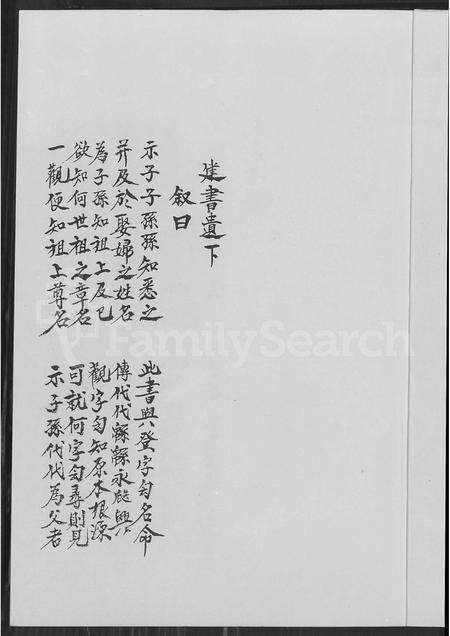 建書遺下
叙曰
示子子孫孫知悉之 此書與登字勻名命
并及於娶婦之姓名 傳代代綿綿永啟興
為子孫知祖上及已 觀字勻知原本根源
欲知何世祖之章名 可就何字勻尋則見
一觀便知祖上尊名 示子孫代代為父者
FamilySearch